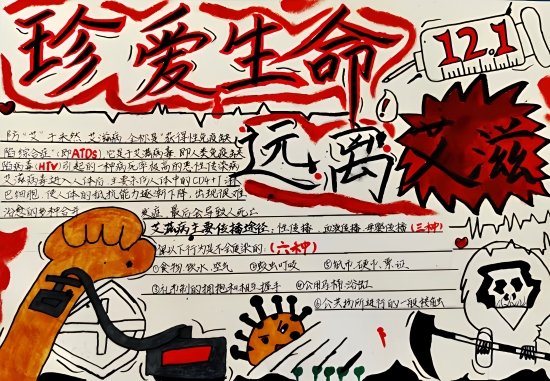 珍爱生命
12.1
远离艾滋
防“艾”于未然 艾滋病 全称是“获得性免疫缺
陷综合症”(即ATDS)它是于艾滋病毒 即人类免疫缺
陷病毒(HTV)引起的一种病死率极高的恶性传染病
艾滋病毒进入人体后 主要杀伤人体中的CD4 T 淋
巴细胞, 使人体的抵抗能力逐渐下降,出现很难
治愈的多种合并 最后会导致人死亡
艾滋病主要传播途径:性传播 血液传播 母婴传播(三种)
以下行为是不会传染的,(六种)
①食物,饮水,空气 ②蚊虫叮咬 ③纸币,硬币,票证
的拥抱和握手 ⑤公用马桶 浴缸
⑥公共场所进行的一般接触